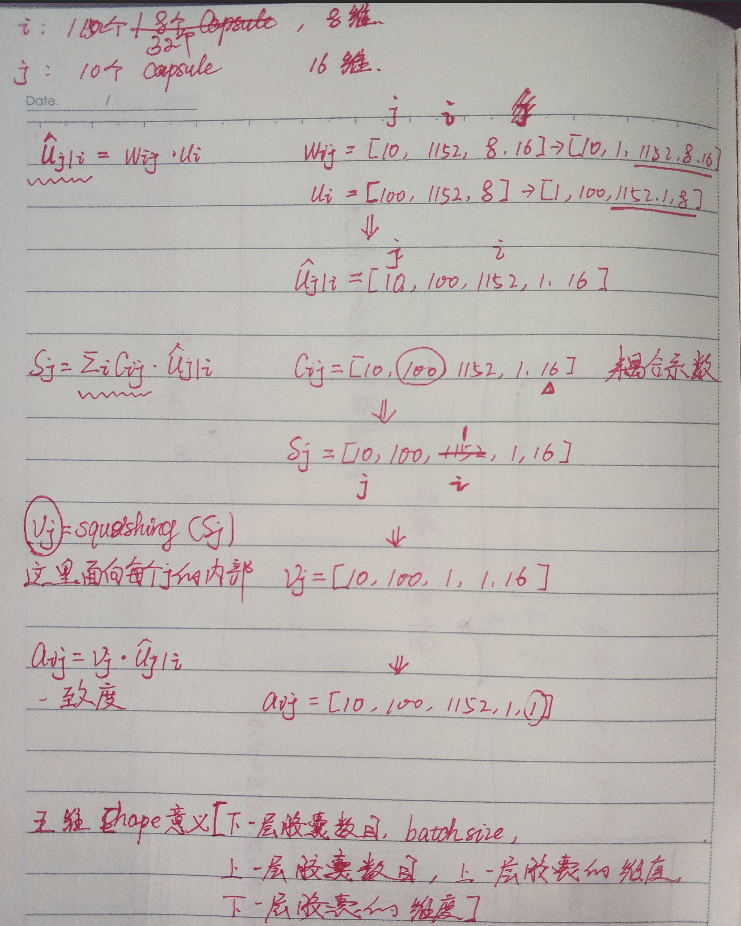 i: 1152个 1 8个 Capsule , 8维.
32个
j: 10个 Capsule 16维.
Date. /
j i
Ûj|i = Wij · Ui Wij = [10, 1152, 8.16] → [10, 1, 1152.8.16]
Ui = [100, 1152, 8] → [1, 100, 1152.1,8]
⇓
j i
Ûj|i = [10, 100, 1152, 1. 16]
Sj = Σi Cij · Ûj|i Cij = [10, 100 1152, 1. 16] 耦合系数
⇓
1
Sj = [10, 100, 1152, 1, 16]
j i
Vj = squashing (Sj) ⇓
这里面向每个j的内部 Vj = [10, 100, 1, 1. 16]
aij = Vj · Ûj|i ⇓
一致度 aij = [10, 100, 1152, 1, 1]
五维 Shape意义[下一层胶囊数目, batch size,
上一层胶囊数目, 上一层胶囊的维度,
下一层胶囊的维度]